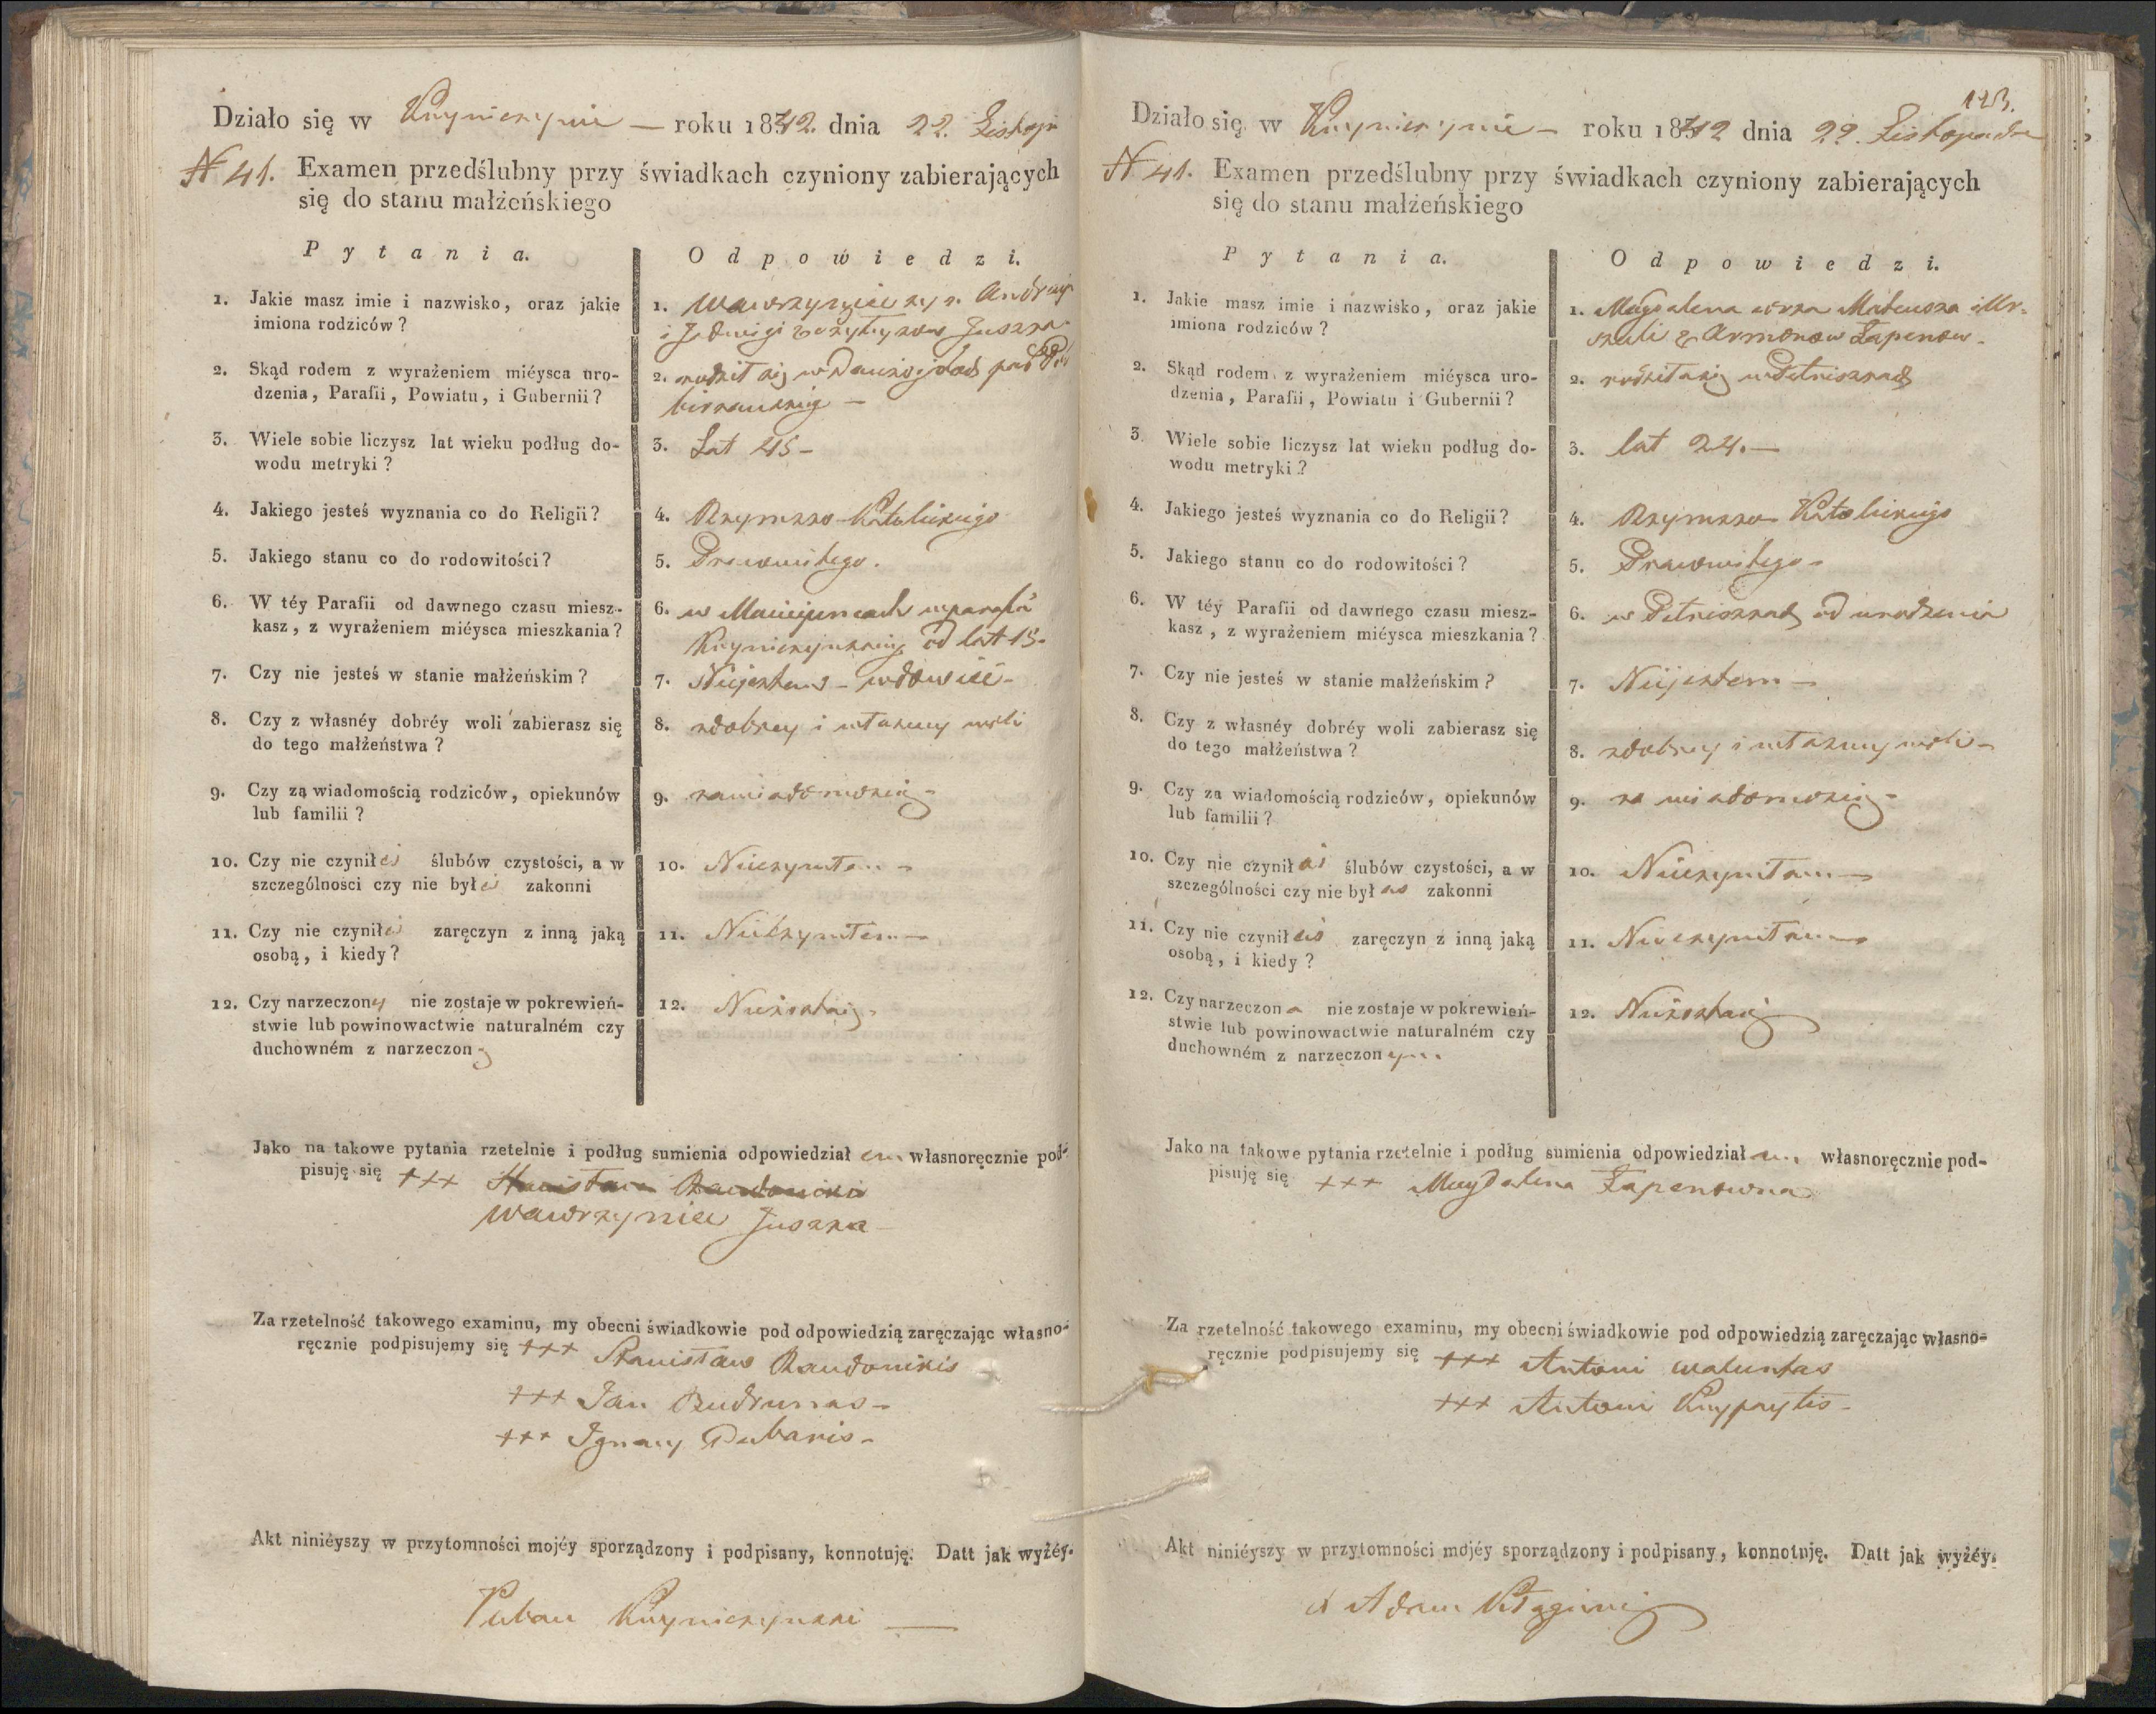 Działo się w Krynicznynie — roku 1842. dnia 22. Listop
N 41. Examen przedślubny przy świadkach czyniony zabierających
się do stanu małżeńskiego
Pytania.
Odpowiedzi.
1. Jakie masz imie i nazwisko, oraz jakie
imiona rodziców?
1. Wawrzyniec syn Andrzeja
i Jadwigi Juszka
2. Skąd rodem z wyrażeniem miéysca uro-
dzenia, Parafii, Powiatu, i Gubernii?
2. rodził się w
3. Wiele sobie liczysz lat wieku podług do-
wodu metryki?
3. Lat 45 –
4. Jakiego jesteś wyznania co do Religii?
4. Rzymsko-Katolickiego
5. Jakiego stanu co do rodowitości?
5. Prawowitego.
6. W téy Parafii od dawnego czasu miesz-
kasz, z wyrażeniem miéysca mieszkania?
6. w parafii
od lat 15 –
7. Czy nie jesteś w stanie małżeńskim?
7. Niejestem – wdowiec –
8. Czy z własnéy dobréy woli zabierasz się
do tego małżeństwa?
8. zdobrey i własney woli
9. Czy zą wiadomością rodziców, opiekunów
lub familii?
9. zawiadomością –
10. Czy nie czynił eś ślubów czystości, a w
szczególnosci czy nie był eś zakonni
10. Nieczyniłem –
11. Czy nie czynił eś zaręczyn z inną jaką
osobą, i kiedy?
11. Nieczyniłem –
12. Czy narzeczony nie zostaje w pokrewień-
stwie lub powinowactwie naturalném czy
duchowném z narzeczon ą
12. Niezostaię –
Jako na takowe pytania rzetelnie i podług sumienia odpowiedział em własnoręcznie pod-
pisuję się +++ Stanisław Raudonikis
Wawrzyniec Juszka –
Za rzetelność takowego examinu, my obecni świadkowie pod odpowiedzią zaręczając własno-
ręcznie podpisujemy się +++ Stanisław Raudonikis
+++ Jan Budrunas –
+++ Ignacy Dubanis –
Akt niniéyszy w przytomności mojéy sporządzony i podpisany, konnotuję. Datt jak wyżéy.
123.
Działo się w roku 1842 dnia 22. Listopada
N 41. Examen przedślubny przy świadkach czyniony zabierających
się do stanu małżeńskiego
Pytania.
Odpowiedzi.
1. Jakie masz imie i nazwisko, oraz jakie
imiona rodziców?
1. Magdalena córka Mateusza i Ur-
szuli z Armonow Łapenow –
2. Skąd rodem z wyrażeniem miéysca uro-
dzenia, Parafii, Powiatu i Gubernii?
2. rodziła się
3. Wiele sobie liczysz lat wieku podług do-
wodu metryki?
3. lat 24. –
4. Jakiego jesteś wyznania co do Religii?
4. Rzymsko Katolickiego
5. Jakiego stanu co do rodowitości?
5. Prawowitego –
6. W téy Parafii od dawnego czasu miesz-
kasz, z wyrażeniem miéysca mieszkania?
6. w od urodzenia
7. Czy nie jesteś w stanie małżeńskim?
7. Niejestem –
8. Czy z własnéy dobréy woli zabierasz się
do tego małżeństwa?
8. zdobrey i własney woli –
9. Czy za wiadomością rodziców, opiekunów
lub familii?
9. za wiadomością –
10. Czy nie czynił aś ślubów czystości, a w
szczególności czy nie był aś zakonni
10. Nieczyniłam –
11. Czy nie czynił aś zaręczyn z inną jaką
osobą, i kiedy?
11. Nieczyniłam –
12. Czy narzeczon a nie zostaje w pokrewień-
stwie lub powinowactwie naturalném czy
duchowném z narzeczon ym
12. Niezostaię
Jako na takowe pytania rzetelnie i podług sumienia odpowiedział am własnoręcznie pod-
pisuję się +++ Magdalena Łapenowna
Za rzetelność takowego examinu, my obecni świadkowie pod odpowiedzią zaręczając własno-
ręcznie podpisujemy się +++ Antoni Waluntas
+++ Antoni
Akt niniéyszy w przytomności mojéy sporządzony i podpisany, konnotuję. Datt jak wyżéy.
X Adam